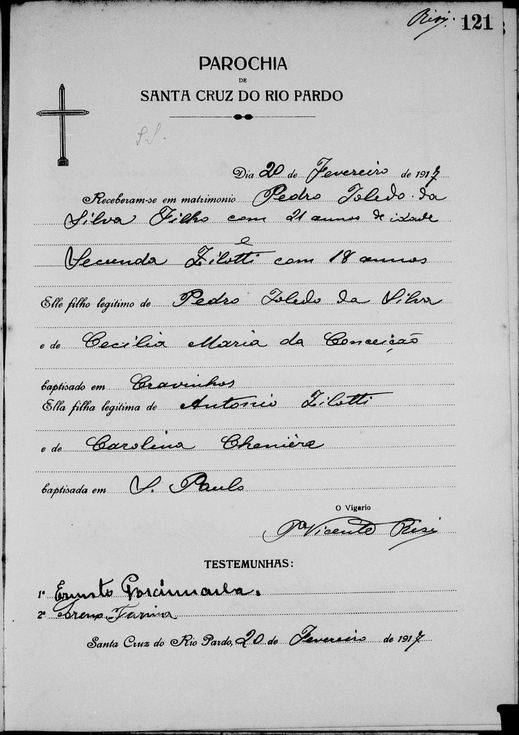 Risi. 121
PAROCHIA
DE
SANTA CRUZ DO RIO PARDO
Dia 20 de Fevereiro de 1917
Receberam-se em matrimonio Pedro Toledo da
Silva Filho com 21 annos de idade
e
Secunda Zilotti com 18 annos
Elle filho legitimo de Pedro Toledo da Silva
e de Cecilia Maria da Conceição
baptisado em Cravinhos
Ella filha legitima de Antonio Zilotti
e de Carolina
baptisada em S. Paulo
O Vigario
Pe Vicente Risi
TESTEMUNHAS:
1ª Ernesto
2ª Farina
Santa Cruz do Rio Pardo, 20 de Fevereiro de 1917